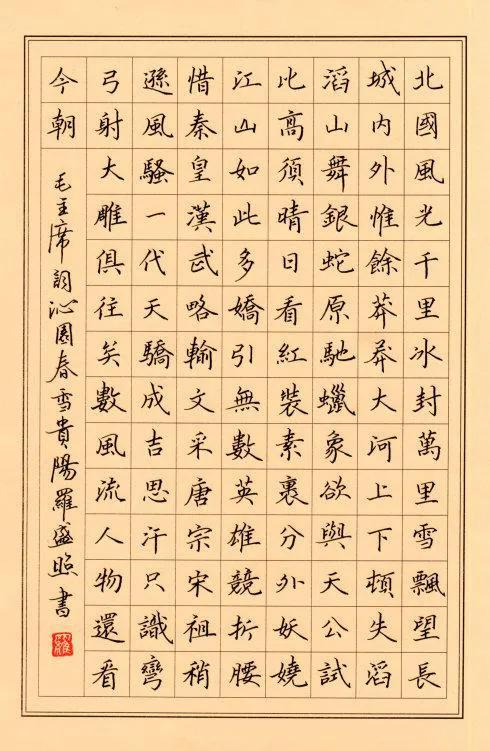 北國風光千里冰封萬里雪飄望長
城内外惟餘莽莽大河上下頓失滔
滔山舞銀蛇原馳蠟象欲與天公試
比高須晴日看紅裝素裹分外妖嬈
江山如此多嬌引無數英雄競折腰
惜秦皇漢武略輸文采唐宗宋祖稍
遜風騷一代天驕成吉思汗只識彎
弓射大雕俱往矣數風流人物還看
今朝
毛主席詞沁園春雪貴陽羅盛照書
羅